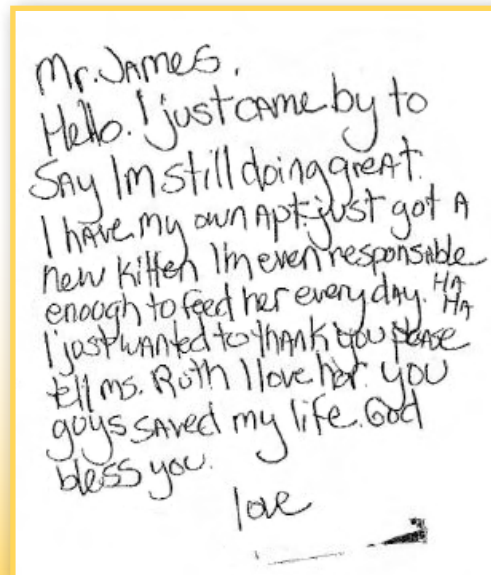 Mr. James,
Hello. I just came by to
say Im still doing great.
I have my own apt. just got a
new kitten Im even responsable
enough to feed her every day. HA HA
I just wanted to thank you please
tell ms. Ruth I love her. you
guys saved my life. God
bless you.
love